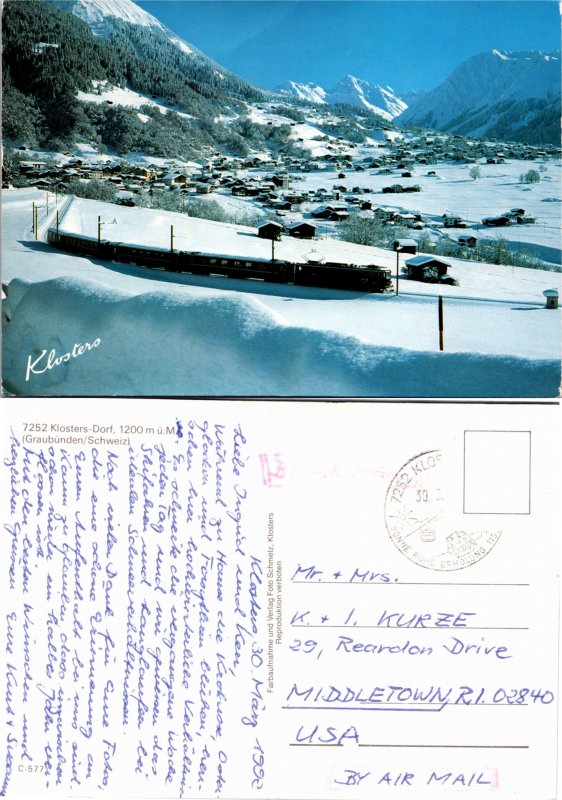 Klosters
7252 Klosters-Dorf, 1200 m ü.M.
(Graubünden/Schweiz)
Klosters, 30. März 1992
Liebe Ingrid und Ken,
Während zu Hause die Krokusse, Oster-
glocken und Forsythien blühen, herr-
schen hier hochwinterliche Verhältnis-
se. Es schneite die vergangene Woche
jeden Tag und wir genießen das
Skifahren und Langlaufen bei
idealen Schneeverhältnissen.
Nach vielen Dank für Eure Fotos,
die eine schöne Erinnerung an
Euren Aufenthalt bei uns sind.
Kaum zu glauben, dass inzwischen
schon mehr als ein halbes Jahr ver-
flossen ist.
Mit den besten Wünschen und
herzlichen Grüssen
Eure Kurt + Susann
C-577
Farbaufnahme und Verlag Foto Schmelz, Klosters
Reproduktion verboten
7252 KLOS
30. 3.
SONNE RUHE ERHOLUNG
Mr. + Mrs.
K. + I. KURZE
29, Reardon Drive
MIDDLETOWN, R.I. 02840
USA
BY AIR MAIL